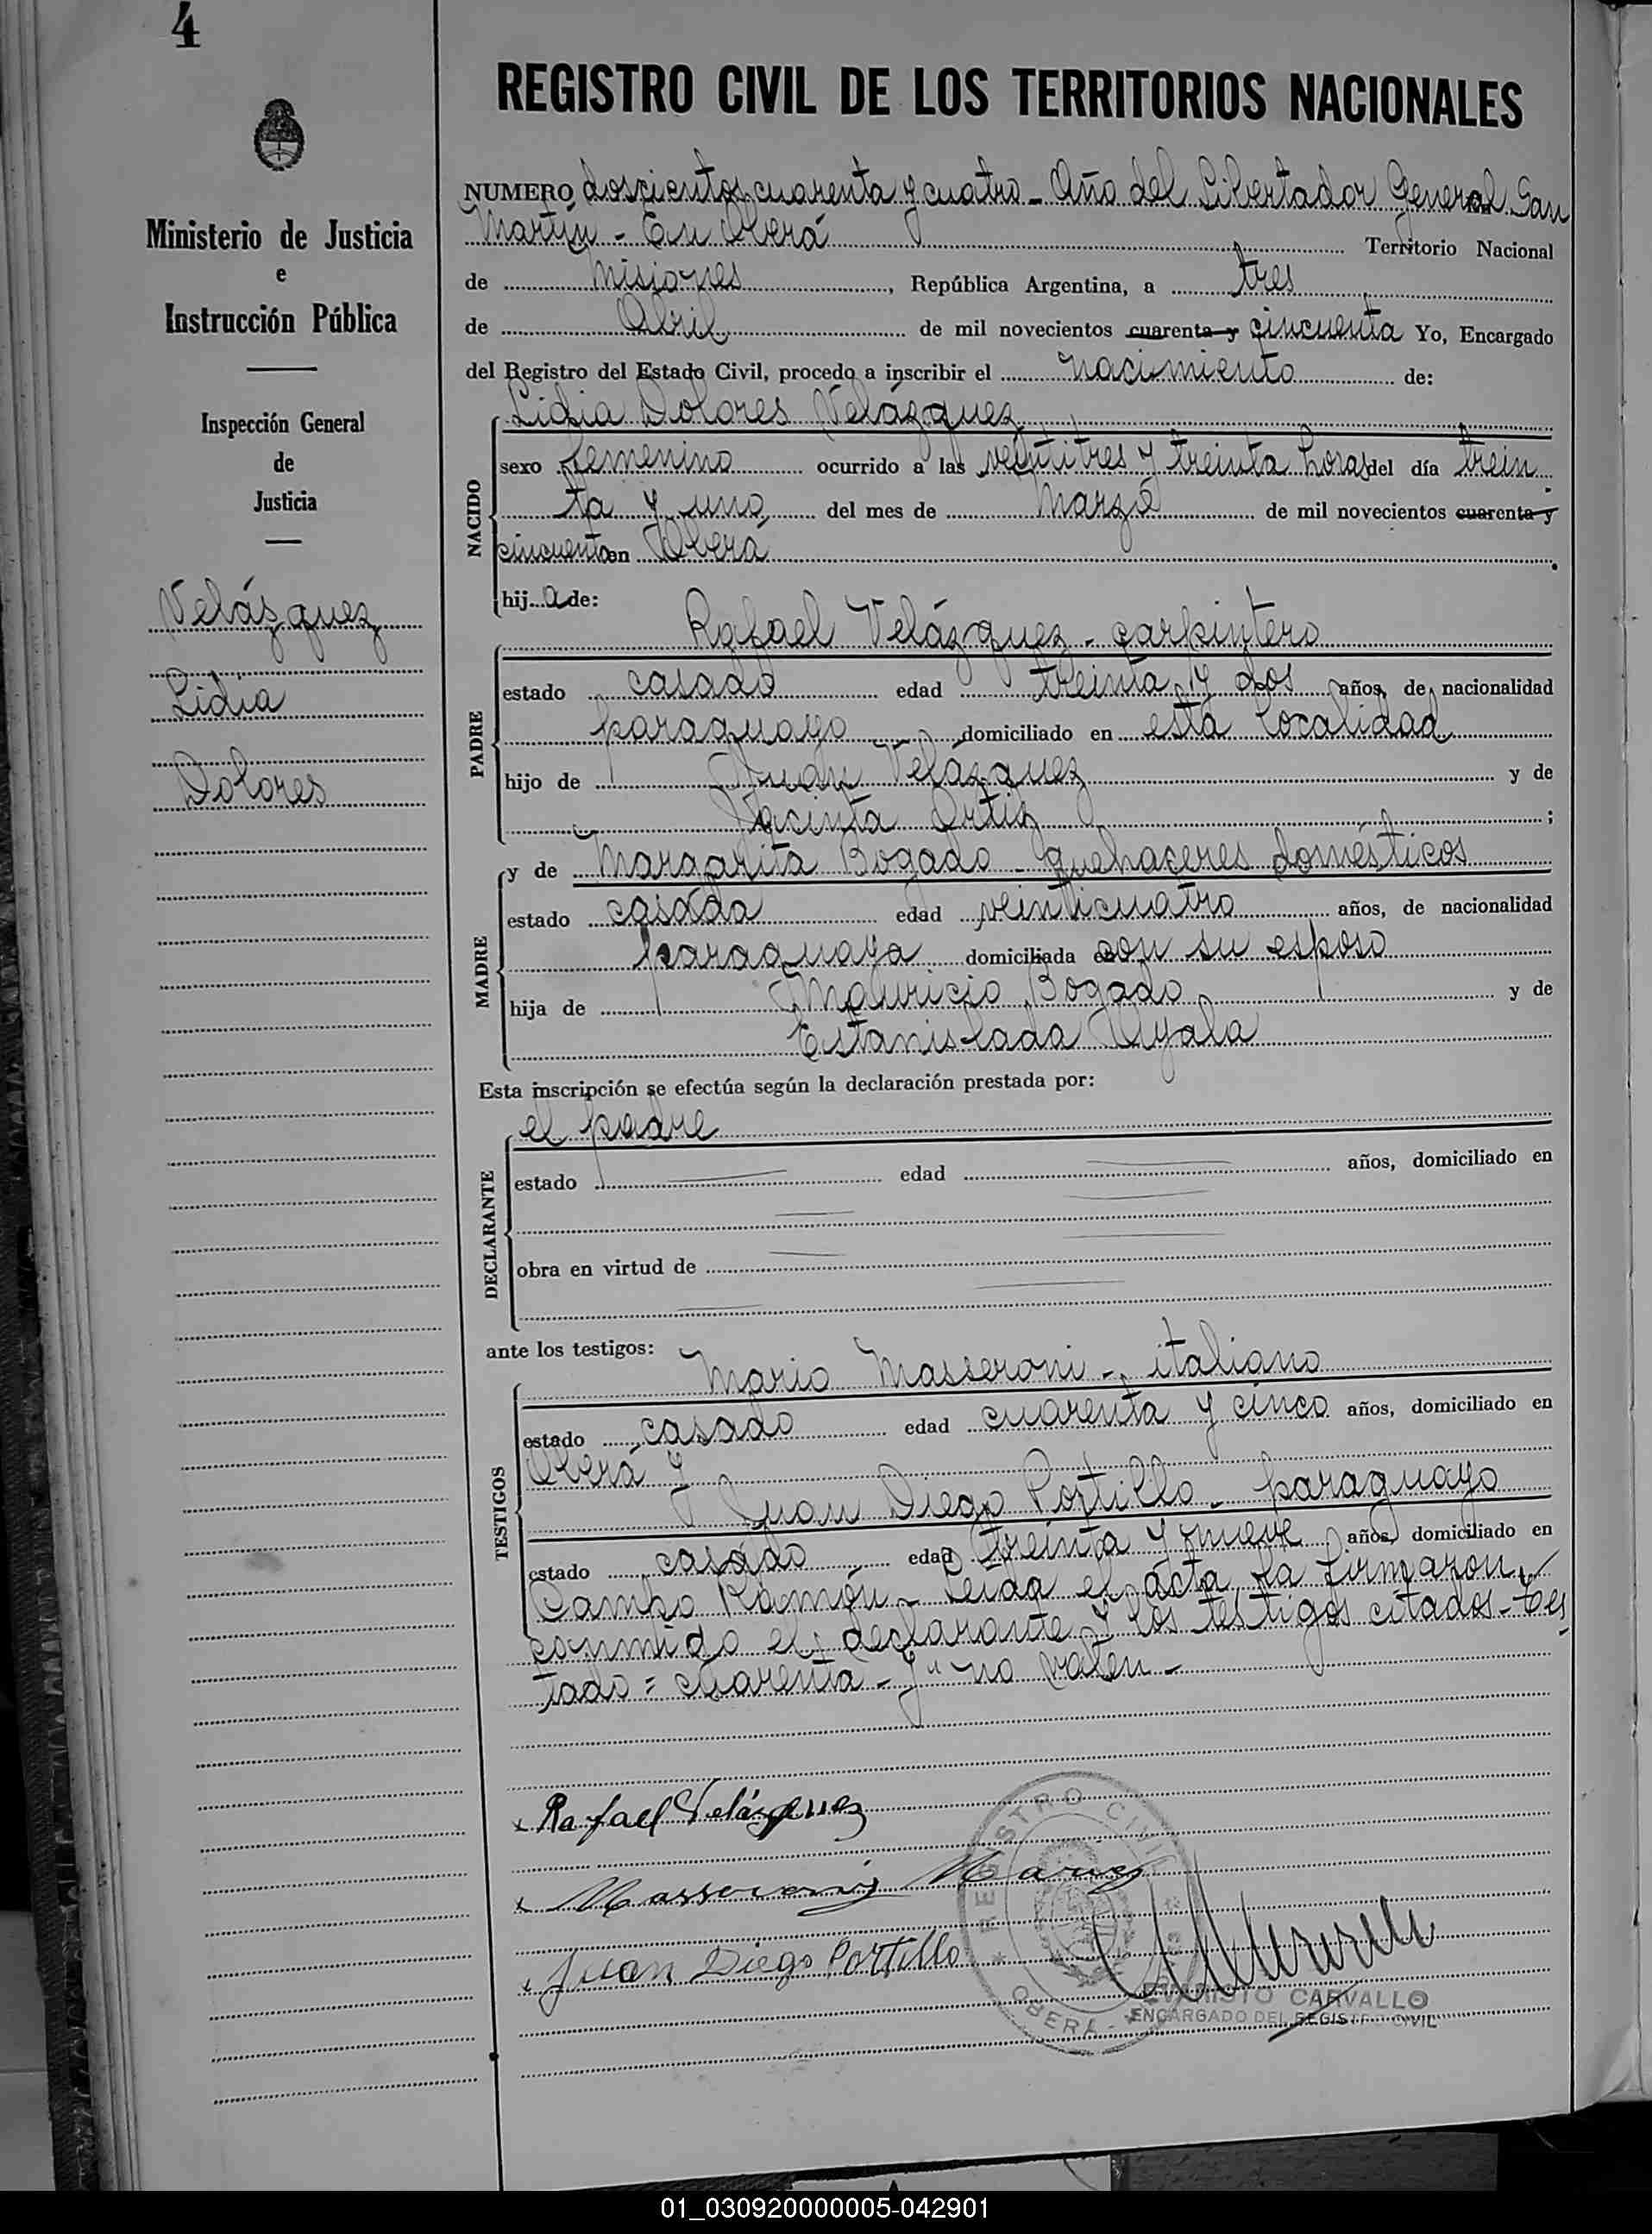 4
Ministerio de Justicia
e
Instrucción Pública
Inspección General
de
Justicia
Velázquez
Lidia
Dolores
REGISTRO CIVIL DE LOS TERRITORIOS NACIONALES
NUMERO doscientos cuarenta y cuatro - Año del Libertador General San
Martín - En Oberá Territorio Nacional
de Misiones, República Argentina, a tres
de Abril de mil novecientos cuarenta y cincuenta Yo, Encargado
del Registro del Estado Civil, procedo a inscribir el nacimiento de:
NACIDO
Lidia Dolores Velázquez
sexo femenino ocurrido a las veintitres y treinta horas del día trein
ta y uno del mes de Marzo de mil novecientos cuarenta y
cincuenta en Oberá.
hija de:
PADRE
Rafael Velázquez - carpintero
estado casado edad treinta y dos años, de nacionalidad
paraguayo domiciliado en esta localidad
hijo de Juan Velázquez y de
Jacinta Ortiz;
MADRE
y de Margarita Bogado - quehaceres domésticos
estado casada edad veinticuatro años, de nacionalidad
paraguaya domiciliada con su esposo
hija de Mauricio Bogado y de
Estanislada Ayala
Esta inscripción se efectúa según la declaración prestada por:
DECLARANTE
el padre
estado edad años, domiciliado en
obra en virtud de
ante los testigos:
TESTIGOS
Mario Masseroni - italiano
estado casado edad cuarenta y cinco años, domiciliado en
Oberá y
Juan Diego Portillo - paraguayo
estado casado edad treinta y nueve años, domiciliado en
Campo Ramón - Leida el acta la firmaron
conmigo el declarante y los testigos citados - Tes
tado = cuarenta - y " no valen -
Rafael Velázquez
Masseroni Mario
Juan Diego Portillo
REGISTRO CIVIL
OBERÁ
EVARISTO CARVALLO
ENCARGADO DEL REGISTRO CIVIL
01_030920000005-042901